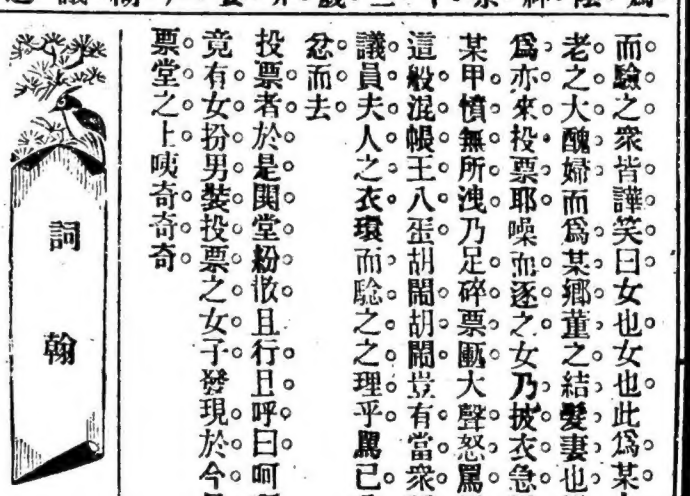 而驗之衆皆譁笑曰女也女也此爲某
老之大醜婦而爲某鄉董之結髮妻也
爲亦來投票耶噪而逐之女乃披衣急
某甲憤無所洩乃足碎票匭大聲怒罵
這般混帳王八蛋胡鬧胡鬧豈有當衆
議員夫人之衣環而驗之之理乎罵已
忿而去
投票者於是閧堂紛散且行且呼曰呵
竟有女扮男裝投票之女子發現於今
票堂之上咦奇奇奇
詞翰